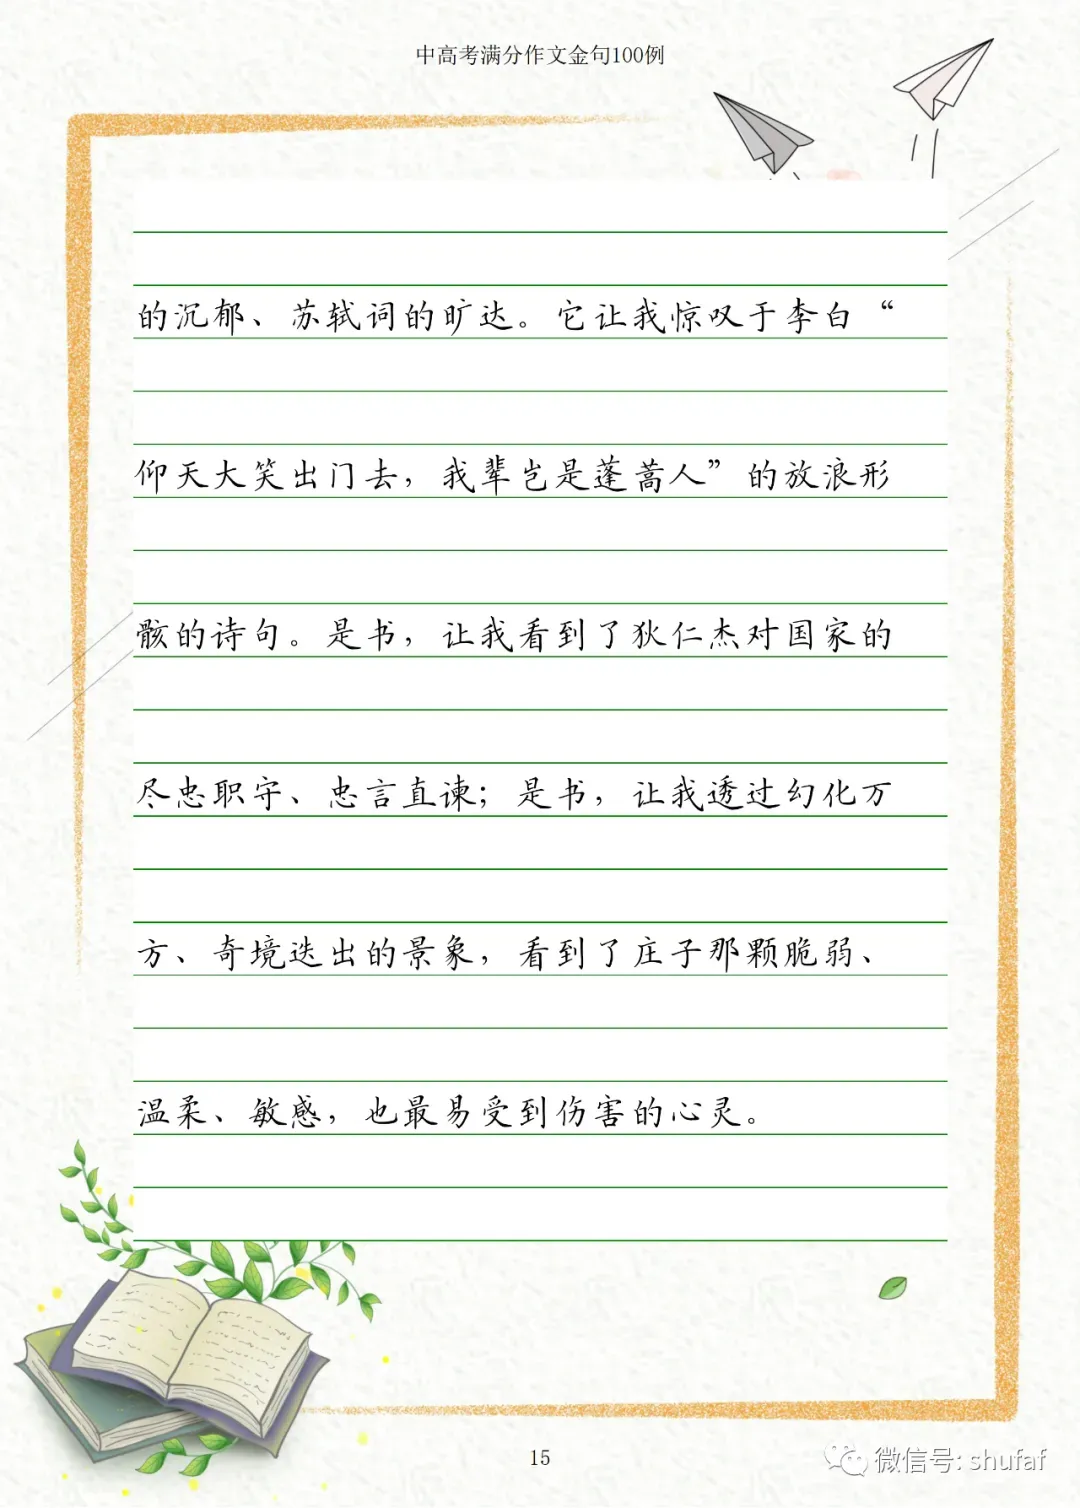 中高考满分作文金句100例
的沉郁、苏轼词的旷达。它让我惊叹于李白“
仰天大笑出门去，我辈岂是蓬蒿人”的放浪形
骸的诗句。是书，让我看到了狄仁杰对国家的
尽忠职守、忠言直谏；是书，让我透过幻化万
方、奇境迭出的景象，看到了庄子那颗脆弱、
温柔、敏感，也最易受到伤害的心灵。
15
微信号: shufaf